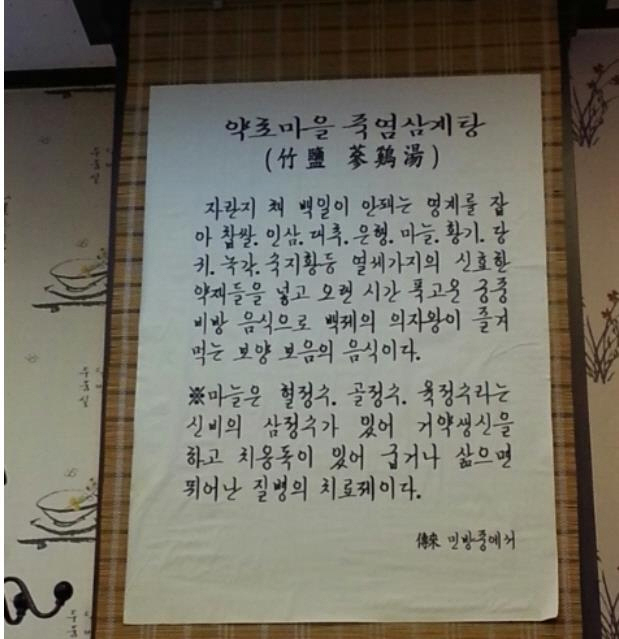 약초마을 죽염삼계탕
(竹鹽 蔘鷄湯)
자란지 채 백일이 안돼는 영계를 잡
아 찹쌀. 인삼. 대추. 은행. 마늘. 황기. 당
귀. 녹각. 숙지황등 열세가지의 신효한
약재들을 넣고 오랜 시간 푹고온 궁중
비방 음식으로 백제의 의자왕이 즐겨
먹는 보양 보음의 음식이다.
※마늘은 혈정수. 골정수. 육정수라는
신비의 삼정수가 있어 거악생신을
하고 치옹독이 있어 굽거나 삶으면
뛰어난 질병의 치료제이다.
傳來 민방중에서